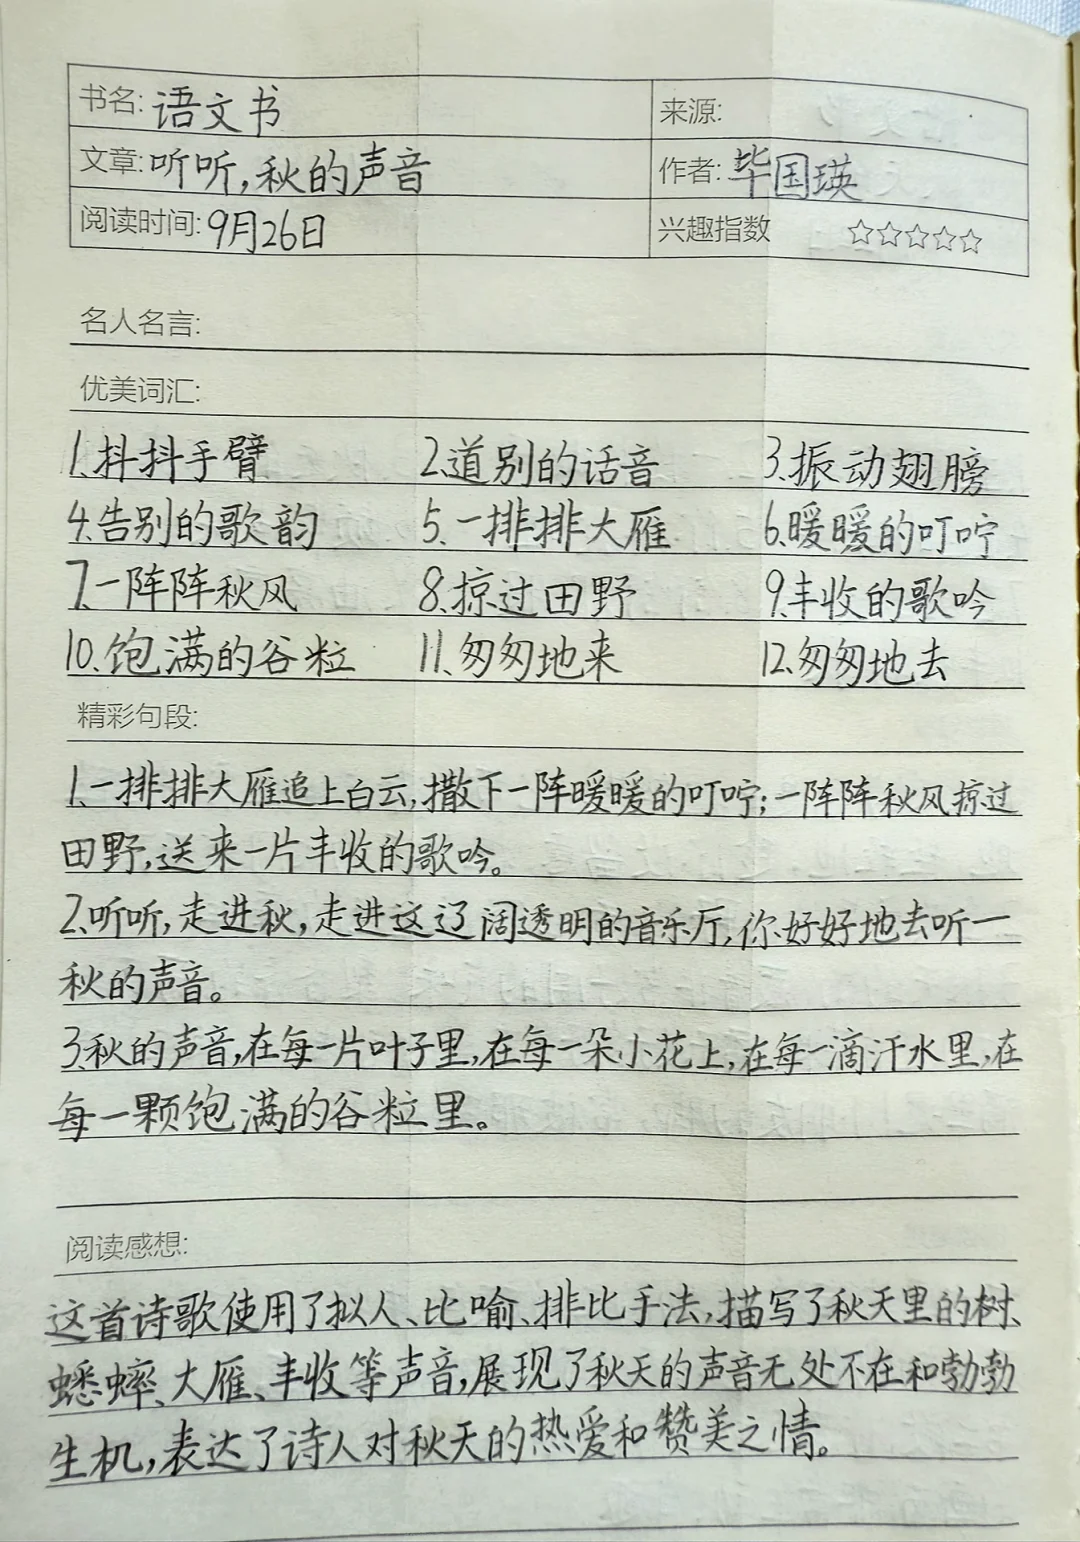 书名: 语文书 来源:
文章: 听听,秋的声音 作者: 毕国瑛
阅读时间: 9月26日 兴趣指数 ☆☆☆☆☆
名人名言:
优美词汇:
1.抖抖手臂 2.道别的话音 3.振动翅膀
4.告别的歌韵 5.一排排大雁 6.暖暖的叮咛
7.一阵阵秋风 8.掠过田野 9.丰收的歌吟
10.饱满的谷粒 11.匆匆地来 12.匆匆地去
精彩句段:
1.一排排大雁追上白云,撒下一阵暖暖的叮咛;一阵阵秋风掠过
田野,送来一片丰收的歌吟。
2.听听,走进秋,走进这辽阔透明的音乐厅,你好好地去听一
秋的声音。
3.秋的声音,在每一片叶子里,在每一朵小花上,在每一滴汗水里,在
每一颗饱满的谷粒里。
阅读感想:
这首诗歌使用了拟人、比喻、排比手法,描写了秋天里的树、
蟋蟀、大雁、丰收等声音,展现了秋天的声音无处不在和勃勃
生机,表达了诗人对秋天的热爱和赞美之情。